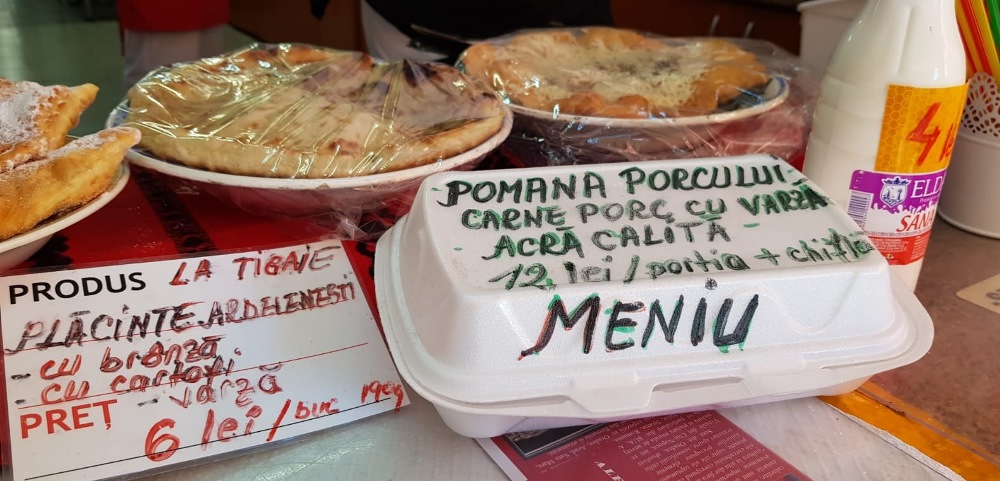 PRODUS LA TIGAIE
PLĂCINTE ARDELENEȘTI
- cu brânză
- cu cartofi
- varză
PREȚ 6 lei/buc 190g
POMANA PORCULUI
CARNE PORC CU VARZĂ
ACRĂ CALITĂ
12 lei/portia + chifla
MENIU
4
ELD
SANA